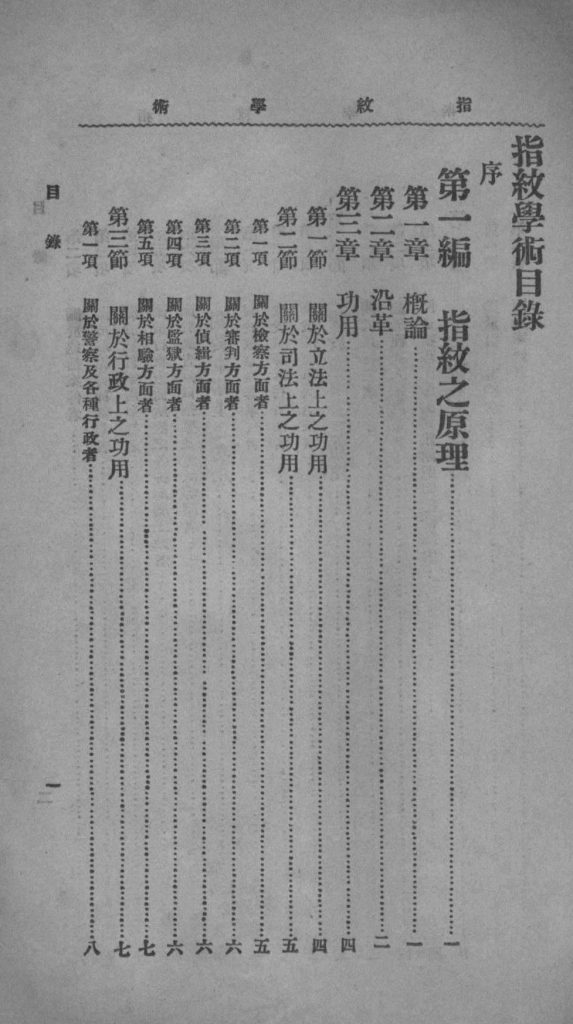 指紋學術
指紋學術目錄
序
第一編 指紋之原理……一
第一章 概論……一
第二章 沿革……二
第三章 功用……四
第一節 關於立法上之功用……四
第二節 關於司法上之功用……五
第一項 關於檢察方面者……五
第二項 關於審判方面者……六
第三項 關於偵緝方面者……六
第四項 關於監獄方面者……六
第五項 關於相驗方面者……七
第三節 關於行政上之功用……七
第一項 關於警察及各種行政者……八
目錄
一